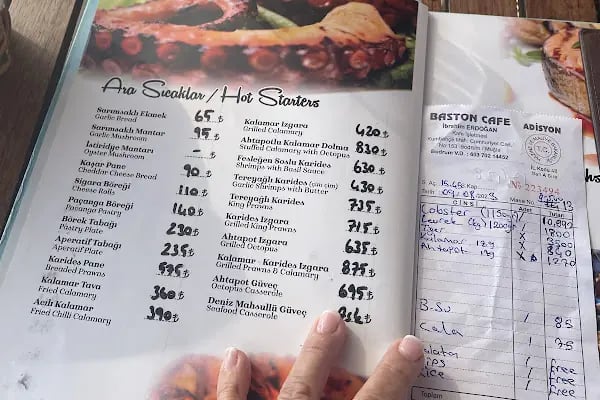 Ara Sıcaklar / Hot Starters
Sarımsaklı Ekmek 65 ₺
Garlic Bread
Sarımsaklı Mantar 95 ₺
Garlic Mushroom
İstiridye Mantarı -
Oyster Mushroom
Kaşar Pane 90 ₺
Cheddar Cheese Bread
Sigara Böreği 110 ₺
Cheese Rolls
Paçanga Böreği 140 ₺
Paçanga Pastry
Börek Tabağı 230 ₺
Pastry Plate
Aperatif Tabağı 235 ₺
Aperatif Plate
Karides Pane 575 ₺
Breaded Prawns
Kalamar Tava 360 ₺
Fried Calamary
Acılı Kalamar 390 ₺
Fried Chilli Calamary
Kalamar Izgara 420 ₺
Grilled Calamary
Ahtapotlu Kalamar Dolma 830 ₺
Stuffed Calamary with Octopus
Fesleğen Soslu Karides 630 ₺
Shrimps with Basil Sauce
Tereyağlı Karides (çim çim) 430 ₺
Garlic Shrimps with Butter
Tereyağlı Karides 735 ₺
King Prawns
Karides Izgara 715 ₺
Grilled King Prawns
Ahtapot Izgara 635 ₺
Grilled Octopus
Kalamar - Karides Izgara 875 ₺
Grilled Prawns & Calamary
Ahtapot Güveç 695 ₺
Octopus Casserole
Deniz Mahsullü Güveç
Seafood Casserole
BASTON CAFE ADİSYON
İbrahim ERDOĞAN
Kafe İşletmesi
Kumbahçe Mah. Cumhuriyet Cad.
No:153 Bodrum /Muğla
Bodrum V.D.
No 223494
Tarih
Masa No 13
CİNSİ Adet Tutarı
Lobster
Levrek 1800
Kalamar 840
Ahtapot 1270
B.Su / 85
Cola / 75
/ free
/ free
/ free
Toplam